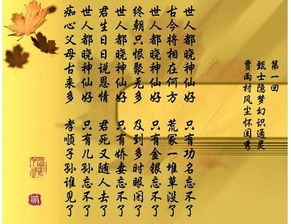 第一回
甄士隐梦幻识通灵
贾雨村风尘怀闺秀
世人都晓神仙好 只有功名忘不了
古今将相在何方 荒冢一堆草没了
世人都晓神仙好 只有金银忘不了
终朝只恨聚无多 及到多时眼闭了
世人都晓神仙好 只有娇妻忘不了
君生日日说恩情 君死又随人去了
世人都晓神仙好 只有儿孙忘不了
痴心父母古来多 孝顺子孙谁见了